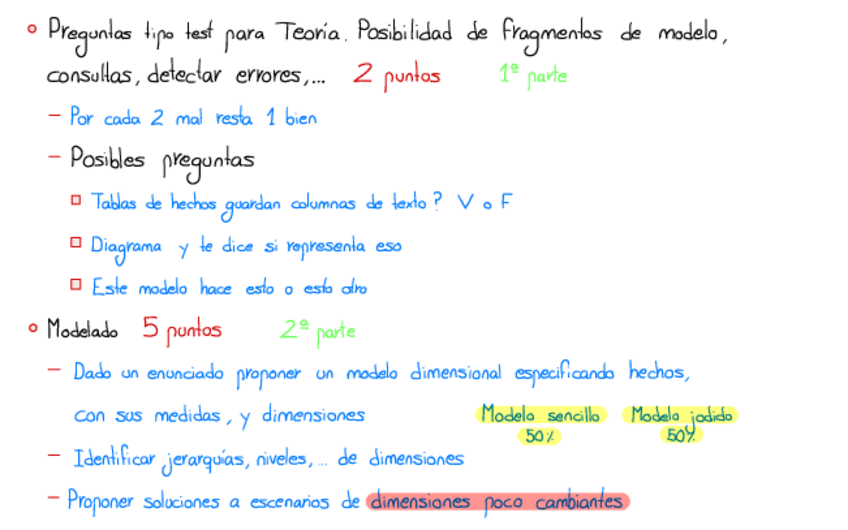 Preguntas tipo test para Teoría. Posibilidad de fragmentos de modelo,
consultas, detectar errores,... 2 puntos 1ª parte
- Por cada 2 mal resta 1 bien
- Posibles preguntas
Tablas de hechos guardan columnas de texto? V o F
Diagrama y te dice si representa eso
Este modelo hace esto o esto otro
Modelado 5 puntos 2ª parte
- Dado un enunciado proponer un modelo dimensional especificando hechos,
con sus medidas, y dimensiones Modelo sencillo Modelo jodido
50% 50%
- Identificar jerarquías, niveles,... de dimensiones
- Proponer soluciones a escenarios de dimensiones poco cambiantes